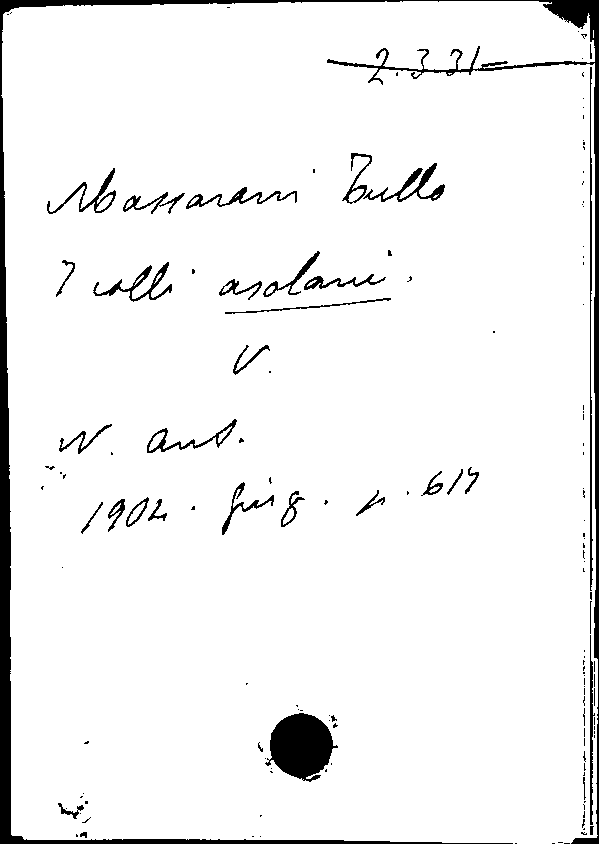 2.3.31
Massarani Tullo
I colli asolani.
V.
N. ant.
1902. giug. p. 617